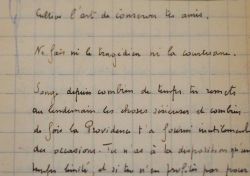 Cultive l'art de conserver tes amis.
Ne fais ni le tragédien ni la courtisane.
Songe depuis combien de temps tu remets
au lendemain les choses sérieuses et combien
de fois la Providence t'a fourni inutilement
des occasions. Tu n'as à ta disposition qu'un
temps limité, et si tu n'en profites pas pour